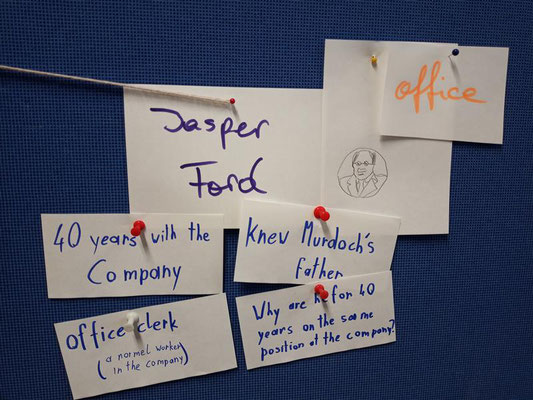 office
Jasper
Ford
40 years with the
Company
Knew Murdoch's
Father
office clerk
(a normel worker
in the company)
Why are he for 40
years on the same
position at the company?